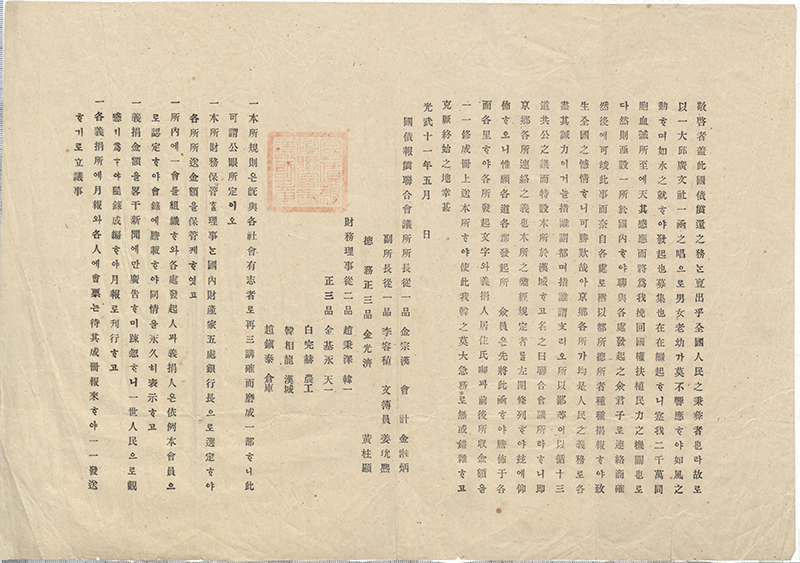 敬啓者蓋此國債償還之務と亶出乎全國人民之秉彛者也라故로
以一大邱廣文社一函之唱으로男女老幼가莫不響應ᄒᆞ야如風之
動ᄒᆞ며如水之就ᄒᆞ야發起也募集也在在繼起ᄒᆞ니寔我二千萬同
胞血誠所至에天其感應而將爲我挽回國權扶植民力之機關也로
다然則亟設一所於國內ᄒᆞ야聊與各處發起之僉君子로連絡商確
然後에可竣此事而奈自各處로稱以都所總所者種種揭報ᄒᆞ야致
生全國之憾情ᄒᆞ니可勝歎哉아京鄕各所가均是人民之義務로各
盡其誠力이거ᄂᆞᆯ措
道共公之議而特設本所於漢城ᄒᆞ고名之曰聯合會議所라ᄒᆞ니卽
京鄕各所連絡之義也本所之
佈ᄒᆞ오니惟願各道各郡發起所 僉員은先將此函ᄒᆞ야謄佈于各
面各里ᄒᆞ야各所發起文字와義捐人居住氏啣과前後所收金額을
一一修成冊上送本所ᄒᆞ야使此我韓之莫大急務로無或錯雜ᄒᆞ고
克厥終始之地幸甚
光武十一年五月 日
國債報償聯合會議所所長從一品 金宗漢 會計 金
副所長從一品 李容稙 文簿員 姜
總務正三品 金光濟 黃柱顯
財務理事從二品 趙秉澤 韓一
正三品 金基永 天一
白完爀 農工
韓相龍 漢城
趙鎭泰 倉庫
一本所規則은旣與各社會有志者로再三講確而磨成一部ᄒᆞ니此
可謂公眼所定이오
一本所財務保管ᄒᆞᆯ理事ᄂᆞᆫ國內財産家五處銀行長으로選定ᄒᆞ야
各所所送金額을保管케ᄒᆞ엿고
一所內에一會를組織ᄒᆞ와各處發起人과義捐人은依例本會員으
로認定ᄒᆞ야會錄에謄載ᄒᆞ야同情을永久히表示ᄒᆞ고
一義捐金額을畧干新聞에만廣告ᄒᆞ미踈忽ᄒᆞ니一世人民으로觀
感키爲ᄒᆞ야隨錄成編ᄒᆞ야月報로刊行ᄒᆞ고
一各義捐所에月報와各人에會票는待其成冊報來ᄒᆞ야一一發送
ᄒᆞ기로立議事